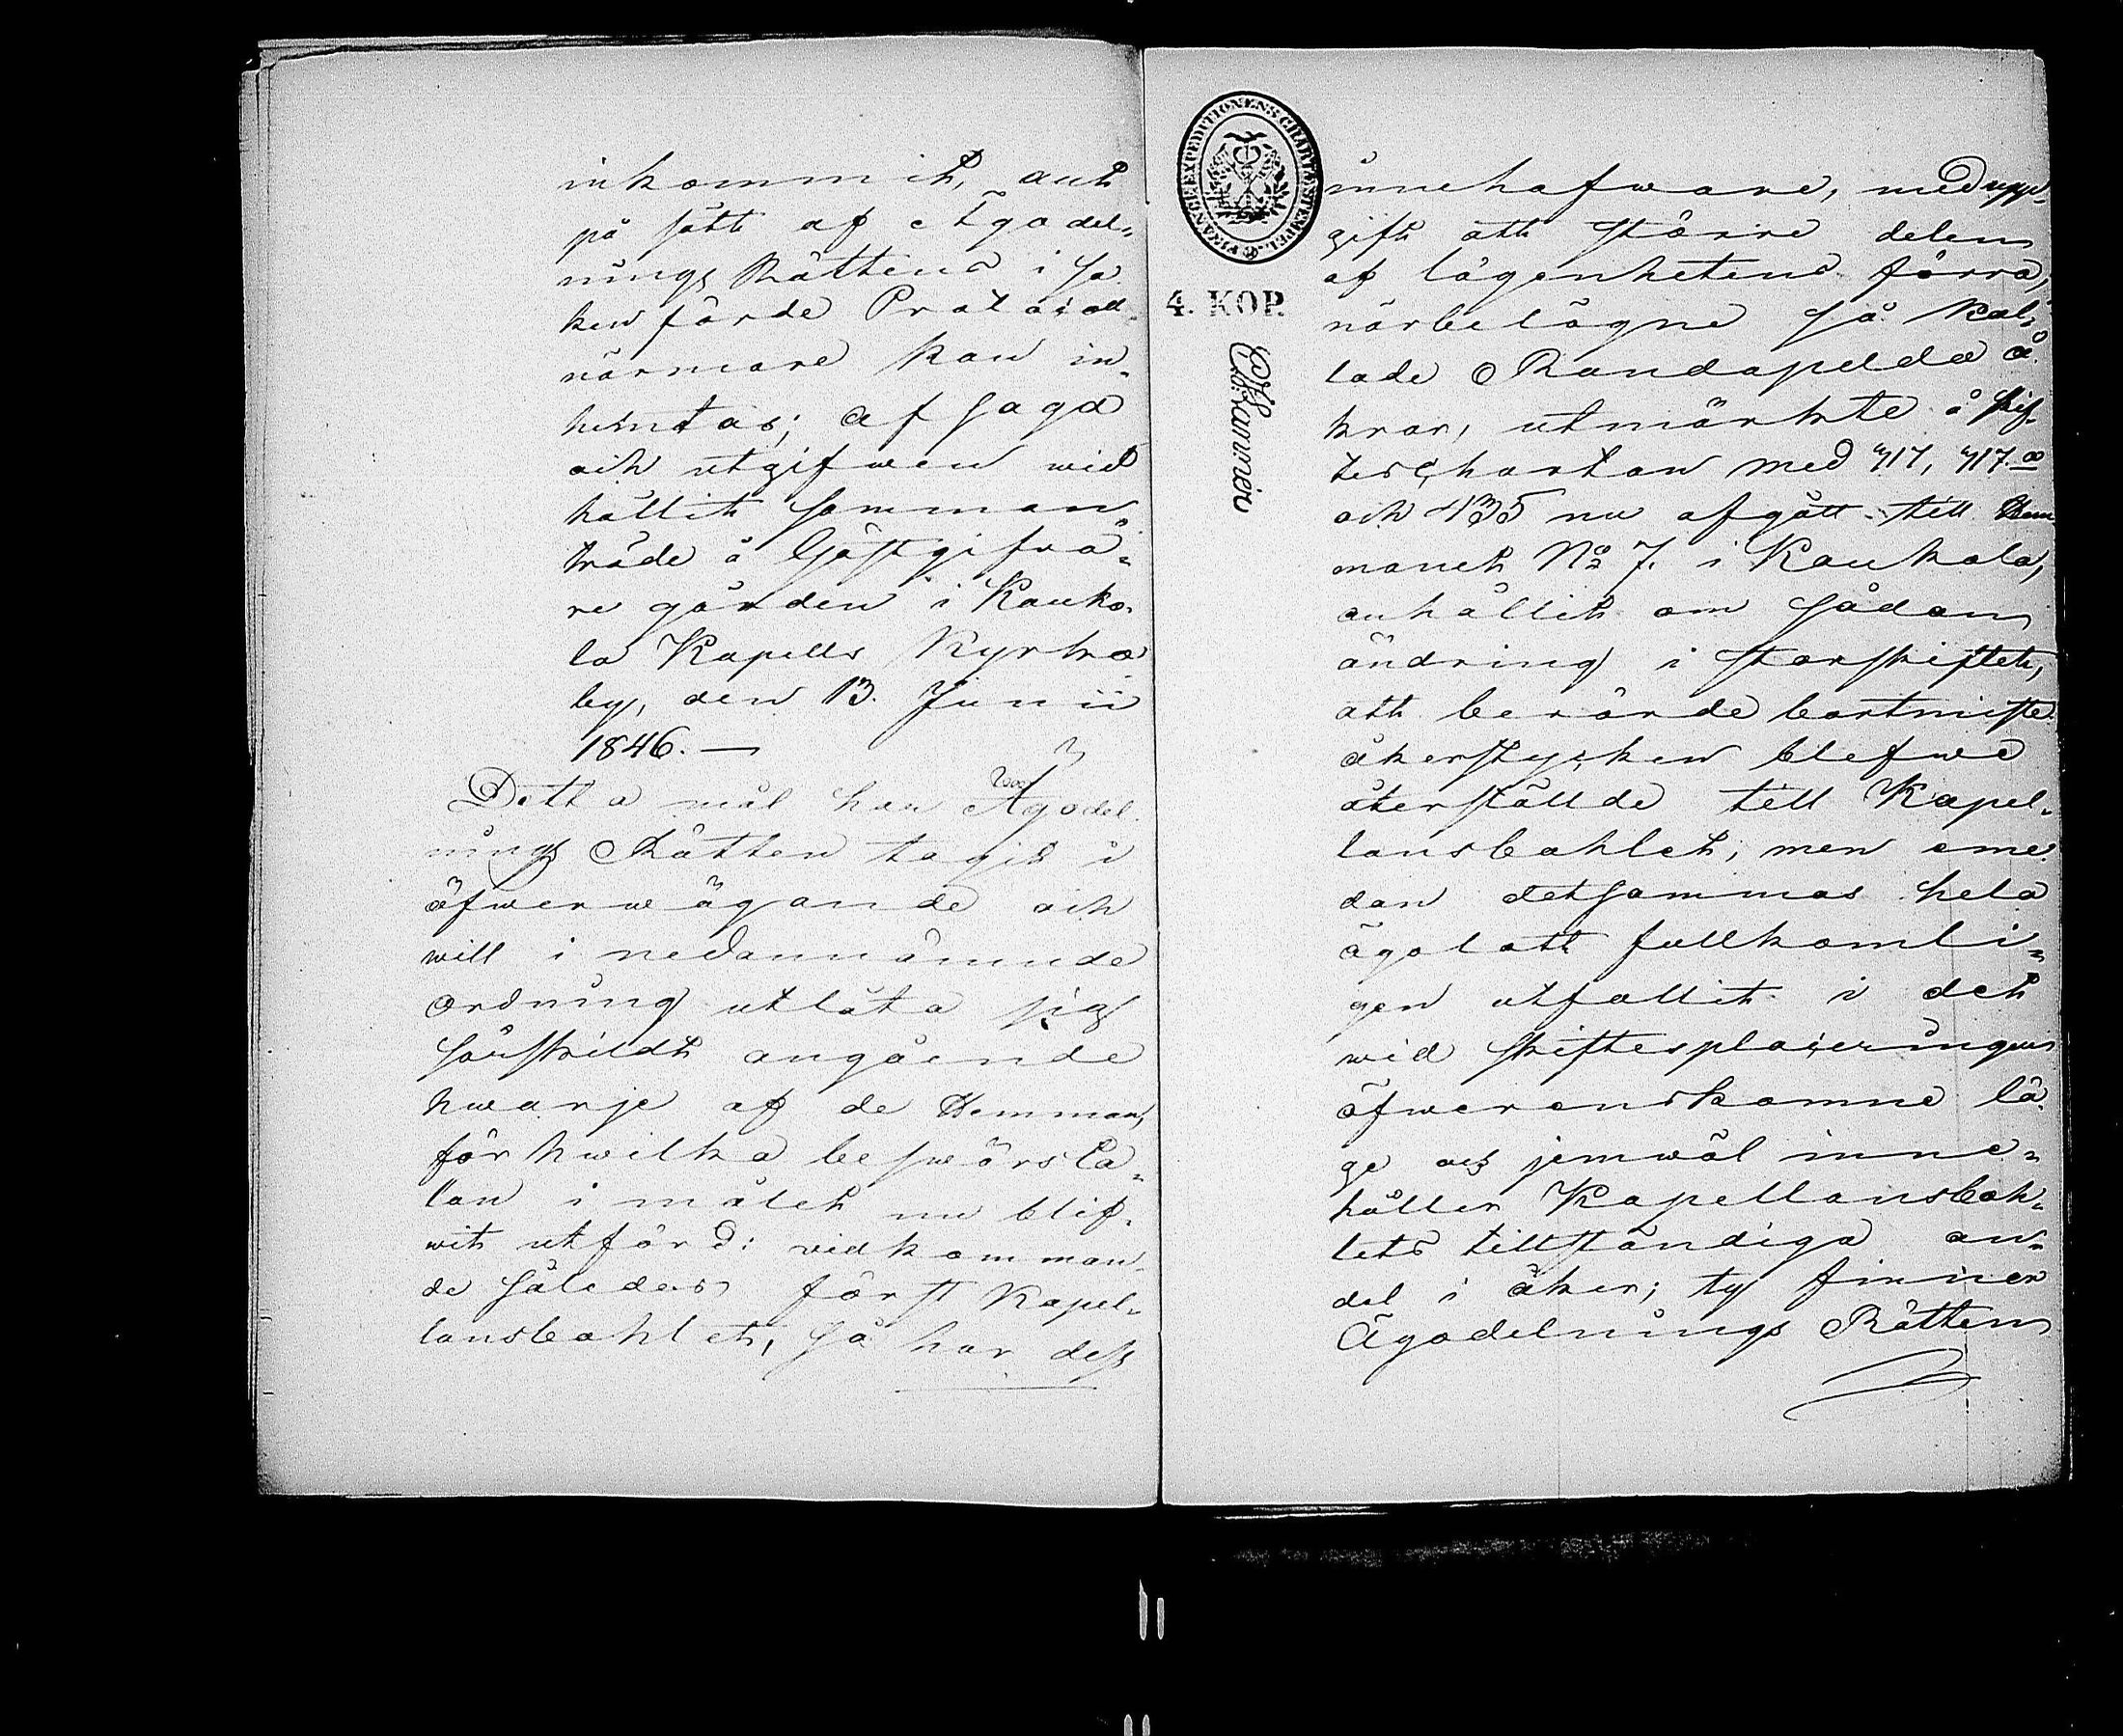 inkommit, allt
på sätt af Ägodel-
nings Rättens i sa-
ken förde Protocoll
närmare kan in-
hemtas; afsagd
och utgifwen wid
hållit samman-
träde å Gästgifwa-
re gården i Kauko-
la Kapells Kyrko
by, den 13. Junii
1846. —
Detta mål har Ägodel-
nings Rätten tagit i
öfwerwägande och
will i nedannämnde
ordning utlåta sig
särskildt angående
hwarje af de Hemman,
för hwilka beswärs ta-
lan i målet nu blif-
wit utförd: vidkomman-
de således först Kapel-
lansbohlet, så har dess
FINANCE EXPEDITIONENS CHARTÆ STEMPEL
4. KOP.
innehafware, med upp-
gift att större delen
af lägenhetens förra,
närbelägne så kal-
lade Randapelde å-
krar, utmärkte å skif-
tes chartan med 417, 417.a
och 435 nu afgått till Hem
manet No 7. i Kaukola,
anhållit om sådan
ändring i storskiftet,
att berörde bortmiste
åkerstycken blefwe
återställde till Kapel-
lansbohlet; men eme-
dan detsammas hela
ägolott fullkomli-
gen utfallit i det
wid skiftesplaceringen
öfwerenskomne lä-
ge och jemwäl inne-
håller Kapellansboh-
lets tillständiga an-
del i åker; ty finner
Ägodelnings Rätten